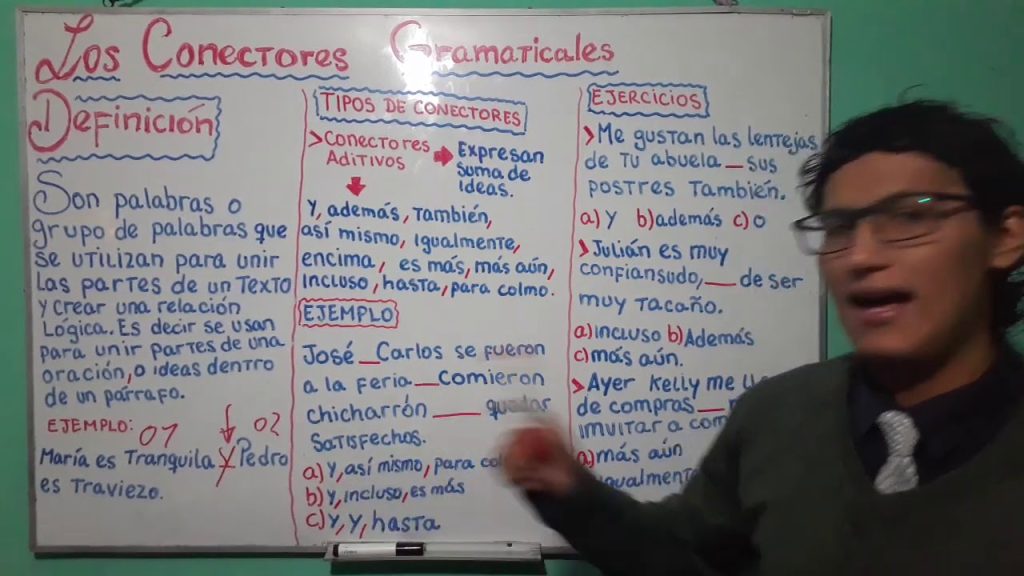 Los Conectores Gramaticales
Definición
Son palabras o
grupo de palabras que
se utilizan para unir
las partes de un texto
y crear una relación
lógica. Es decir se usan
para unir partes de una
oración, o ideas dentro
de un párrafo.
Ejemplo: 01 02
María es tranquila y Pedro
es traviezo.
Tipos de conectores
>Conectores
Aditivos
Expresan
suma de
ideas.
y, además, también,
así mismo, igualmente,
encima, es más, más aún,
incluso, hasta, para colmo.
Ejemplo
José __ Carlos se fueron
a la feria __ comieron
chicharrón ___ quedar
satisfechos.
a) y, así mismo, para
b) y, incluso, es más
c) y, y, hasta
Ejercicios
>Me gustan las lentejas
de tu abuela __ sus
postres también.
a) y b) además c) o
>Julián es muy
conpiansudo, ___ de ser
muy tacaño.
a) incluso b) Además
c) más aún.
>Ayer Kelly me
de compras __
imvitar a
a) más aún
igualmen